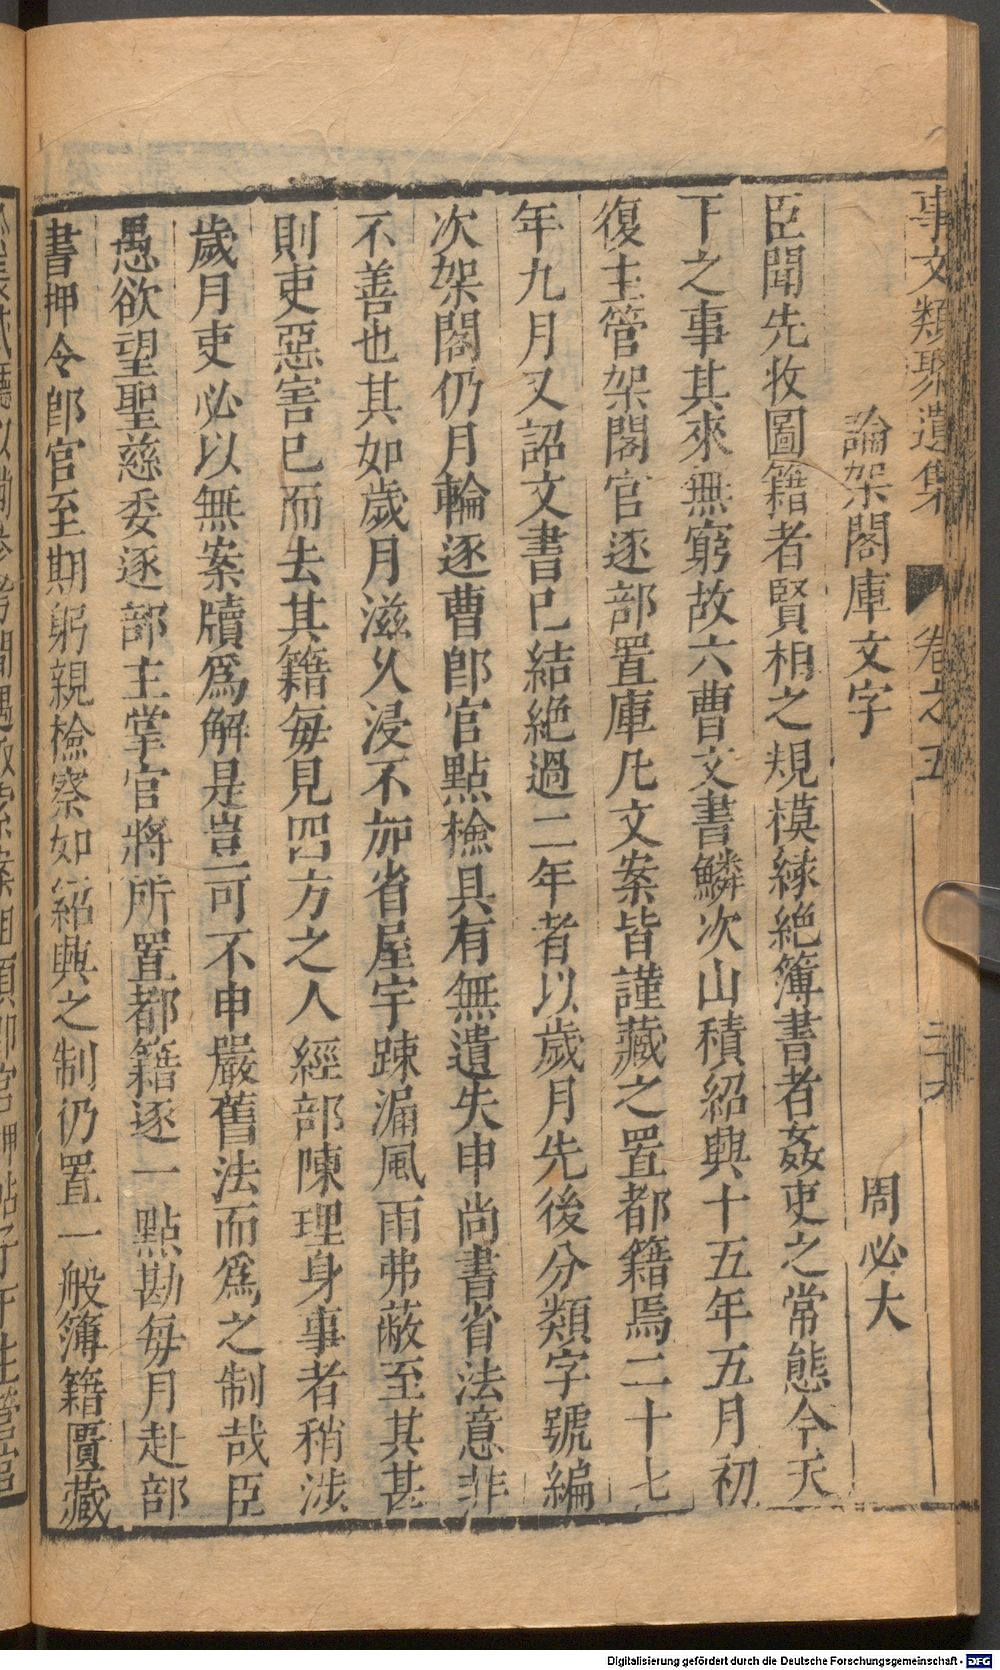 事文類聚遺集 卷之五
論架閣庫文字 周必大
臣聞先收圖籍者賢相之規模綠絕簿書者姦吏之常態今天
下之事其來無窮故六曹文書鱗次山積紹興十五年五月初
復主管架閣官逐部置庫凡文案皆謹藏之置都籍焉二十七
年九月又詔文書已結絕過二年者以歲月先後分類字號編
次架閣仍月輪逐曹郎官點檢具有無遺失申尚書省法意非
不善也其如歲月滋久浸不加省屋宇踈漏風雨弗蔽至其甚
則吏惡害已而去其籍每見四方之人經部陳理身事者稍涉
歲月吏必以無案牘爲解是豈可不申嚴舊法而爲之制哉臣
愚欲望聖慈委逐部主掌官將所置都籍逐一點勘每月赴部
書押令郎官至期躬親檢察如紹興之制仍置一般簿籍匱藏
Digitalisierung gefördert durch die Deutsche Forschungsgemeinschaft - DFG